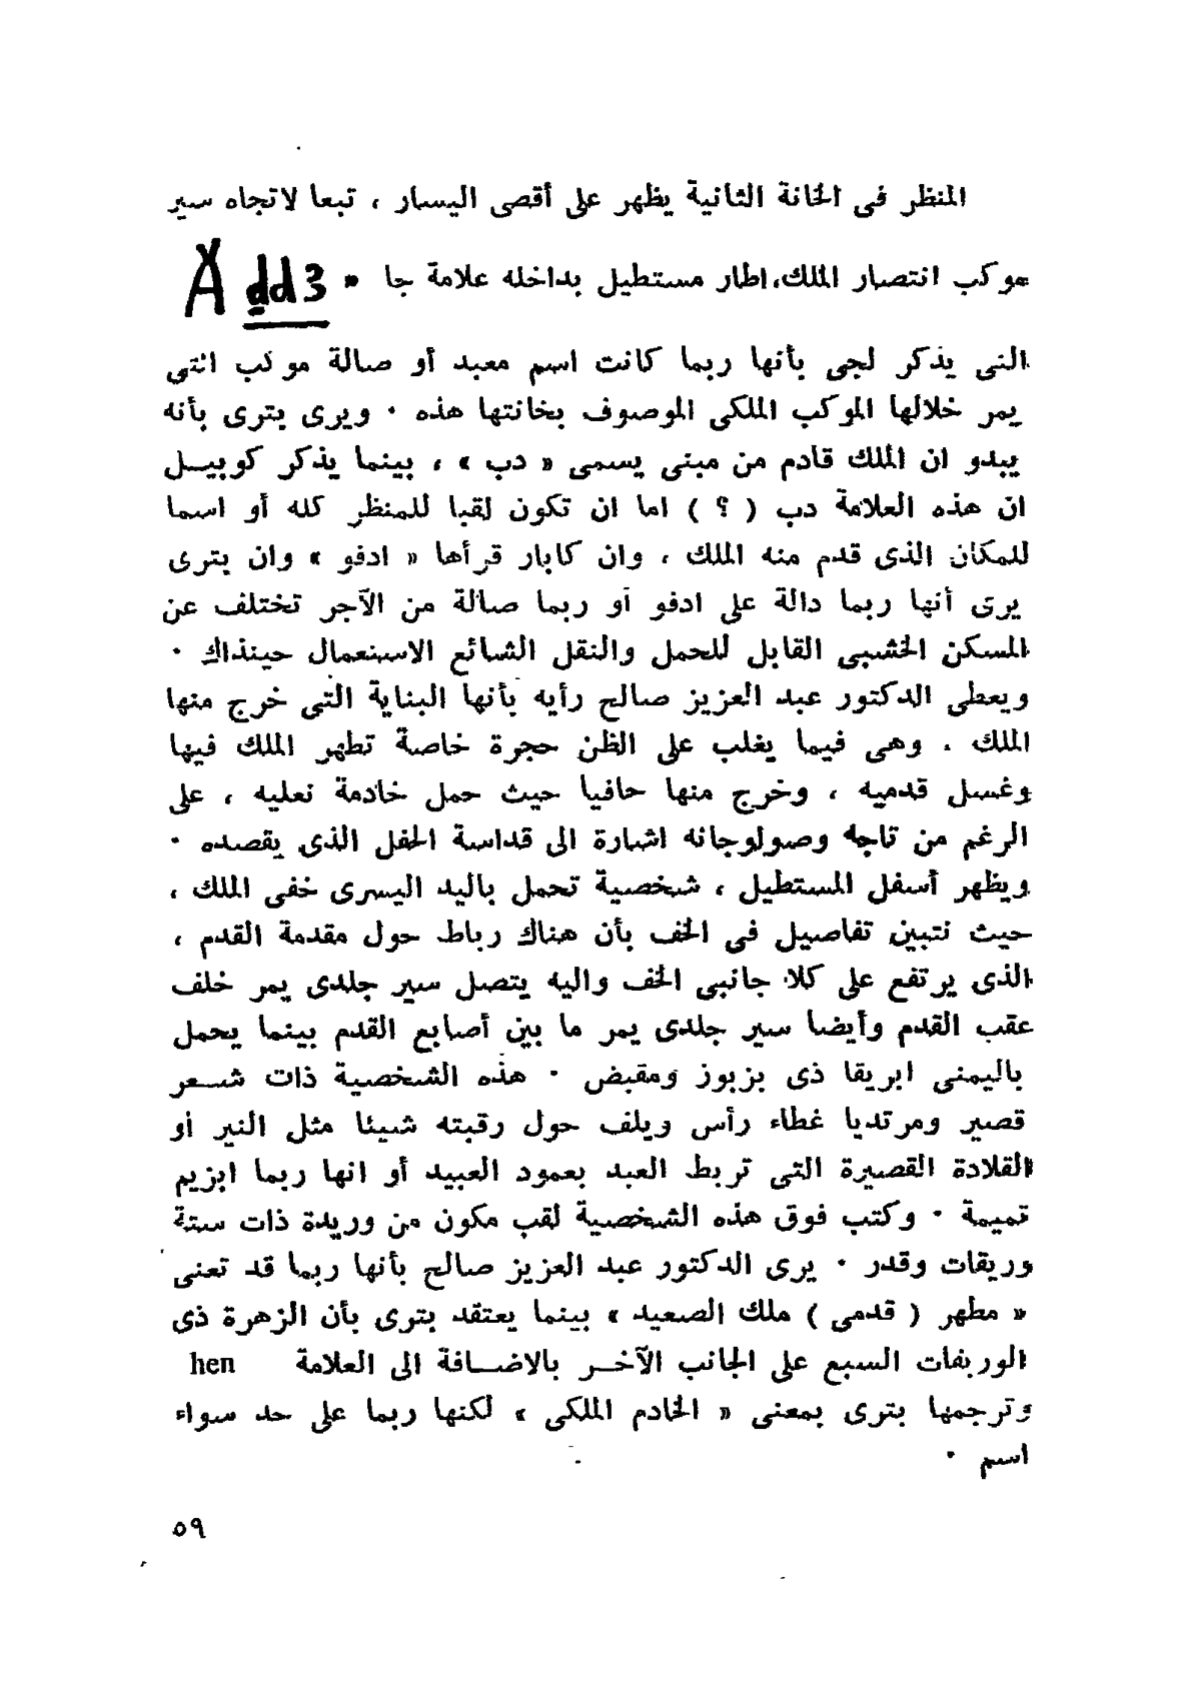 المنظر فى الخانة الثانية يظهر على أقصى اليسار ، تبعا لاتجاه سير
موكب انتصار الملك، اطار مستطيل بداخله علامة جا » dd3
التى يذكر لجى بأنها ربما كانت اسم معبد أو صالة موكب التى
يمر خلالها الموكب الملكى الموصوف بخانتها هذه · ويرى بترى بأنه
يبدو ان الملك قادم من مبنى يسمى « دب » ، بينما يذكر كوبيــل
ان هذه العلامة دب ( ؟ ) اما ان تكون لقبا للمنظر كله أو اسما
للمكان الذى قدم منه الملك ، وان كابار قرأها « ادفو » وان بترى
يرى أنها ربما دالة على ادفو أو ربما صالة من الآجر تختلف عن
المسكن الخشبى القابل للحمل والنقل الشائع الاستعمال حينذاك ·
ويعطى الدكتور عبد العزيز صالح رأيه بأنها البناية التى خرج منها
الملك . وهى فيما يغلب على الظن حجرة خاصة تطهر الملك فيها
وغسل قدميه ، وخرج منها حافيا حيث حمل خادمة نعليه ، على
الرغم من تاجه وصولوجانه اشارة الى قداسة الحفل الذى يقصده ·
ويظهر أسفل المستطيل ، شخصية تحمل باليد اليسرى خفى الملك ،
حيث نتبين تفاصيل فى الخف بأن هناك رباط حول مقدمة القدم ،
الذى يرتفع على كلا جانبى الخف واليه يتصل سير جلدى يمر خلف
عقب القدم وأيضا سير جلدى يمر ما بين أصابع القدم بينما يحمل
باليمنى ابريقا ذى بزبوز ومقبض · هذه الشخصية ذات شـــعر
قصير ومرتديا غطاء رأس ويلف حول رقبته شيئا مثل النير أو
القلادة القصيرة التى تربط العبد بعمود العبيد أو انها ربما ابزيم
تميمة · وكتب فوق هذه الشخصية لقب مكون من وريدة ذات ستة
وريقات وقدر · يرى الدكتور عبد العزيز صالح بأنها ربما قد تعنى
« مطهر ( قدمى ) ملك الصعيد » بينما يعتقد بترى بأن الزهرة ذى
الوريقات السبع على الجانب الآخــر بالاضــافة الى العلامة hen
وترجمها بترى بمعنى « الخادم الملكى » لكنها ربما على حد سواء
اسم ·
٥٩